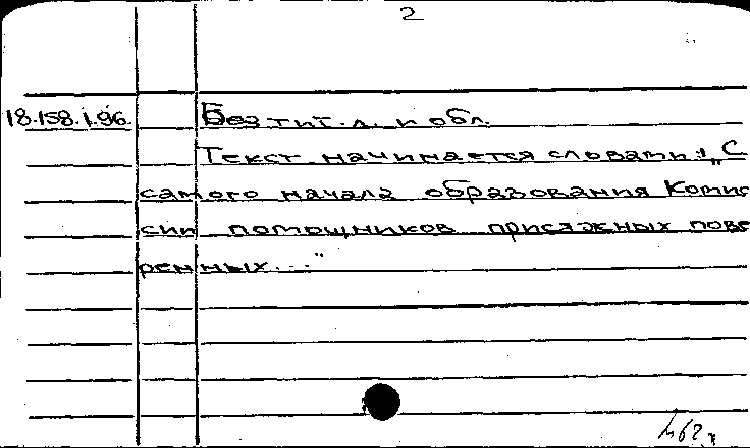 2
18.158.1.96. Без тит. л. и обл.
Текст начинается словами: „С
самого начала образования Комис
сии помощников присяжных пове
ренных..."